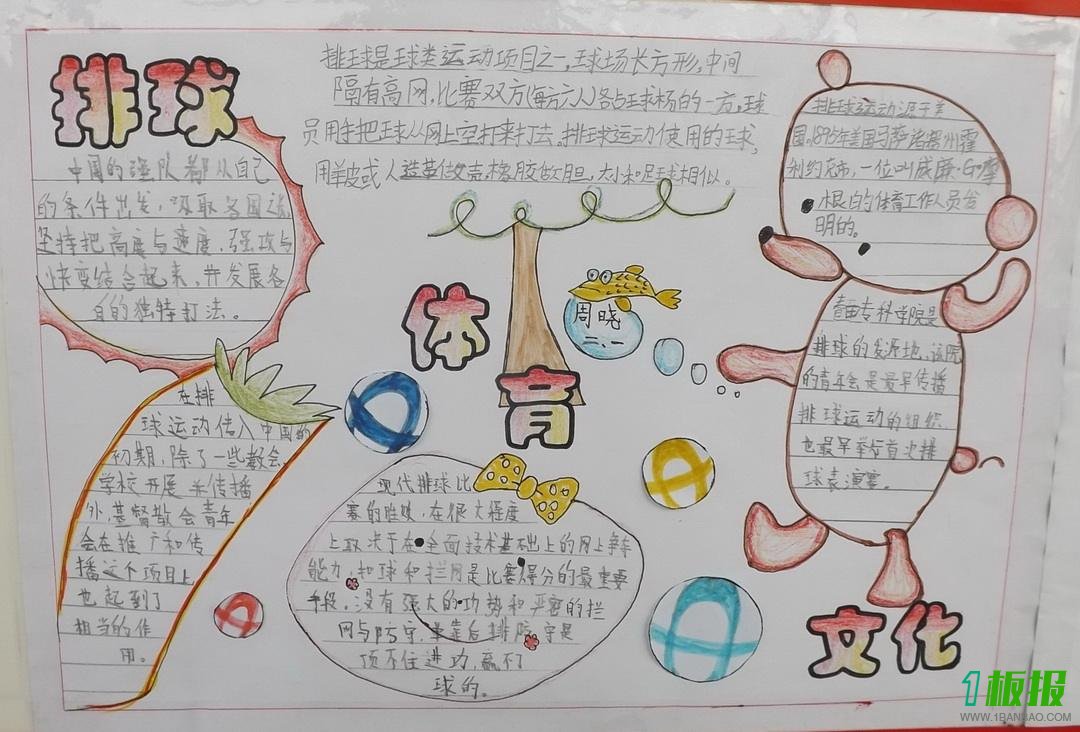 排球
中国的强队都从自己
的条件出发，吸取各国之长，
坚持把高度与速度、强攻与
快变结合起来，并发展各
自的独特打法。。
排球是球类运动项目之一，球场长方形，中间
隔有高网，比赛双方(每方六人)各占球场的一方，球
员用手把球从网上空打来打去。排球运动使用的球，
用羊皮或人造革做壳，橡胶做胆，大小和足球相似。
排球运动源于美
国。1895年美国马萨诸塞州霍
利约克市，一位叫威廉·G·摩
根的体育工作人员发
明的。
体
育
周晓
二、一
春田专科学院是
排球的发源地，该院
的青年会是最早传播
排球运动的组织，
也最早举行首次排
球表演赛。
在排
球运动传入中国的
初期，除了一些教会
学校开展并传播
外，基督教会青年
会在推广和传
播这个项目上
也起到了
相当的作
用。
现代排球比
赛的胜败，在很大程度
上取决于在全面技术基础上的网上争夺
能力，扣球和拦网是比赛得分的最重要
手段，没有强大的攻势和严密的拦
网与防守，单靠后排防守是
顶不住进攻，赢不了
球的。
文化
1板报
WWW.1BANBAO.COM